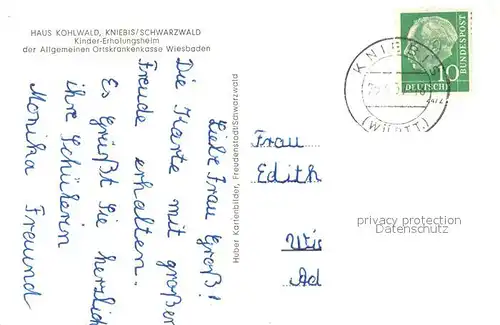 HAUS KOHLWALD, KNIEBIS/SCHWARZWALD
Kinder-Erholungsheim
der Allgemeinen Ortskrankenkasse Wiesbaden
Liebe Frau Groß!
Die Karte mit großer
Freude erhalten.
Es Grüßt Sie herzlich
ihre Schülerin
Monika Freund
Huber Kartenbilder, Freudenstadt/Schwarzwald
KNIEBIS
(WÜRTT.)
10
DEUTSCHE
BUNDESPOST
Frau
Edith
privacy protection
Datenschutz